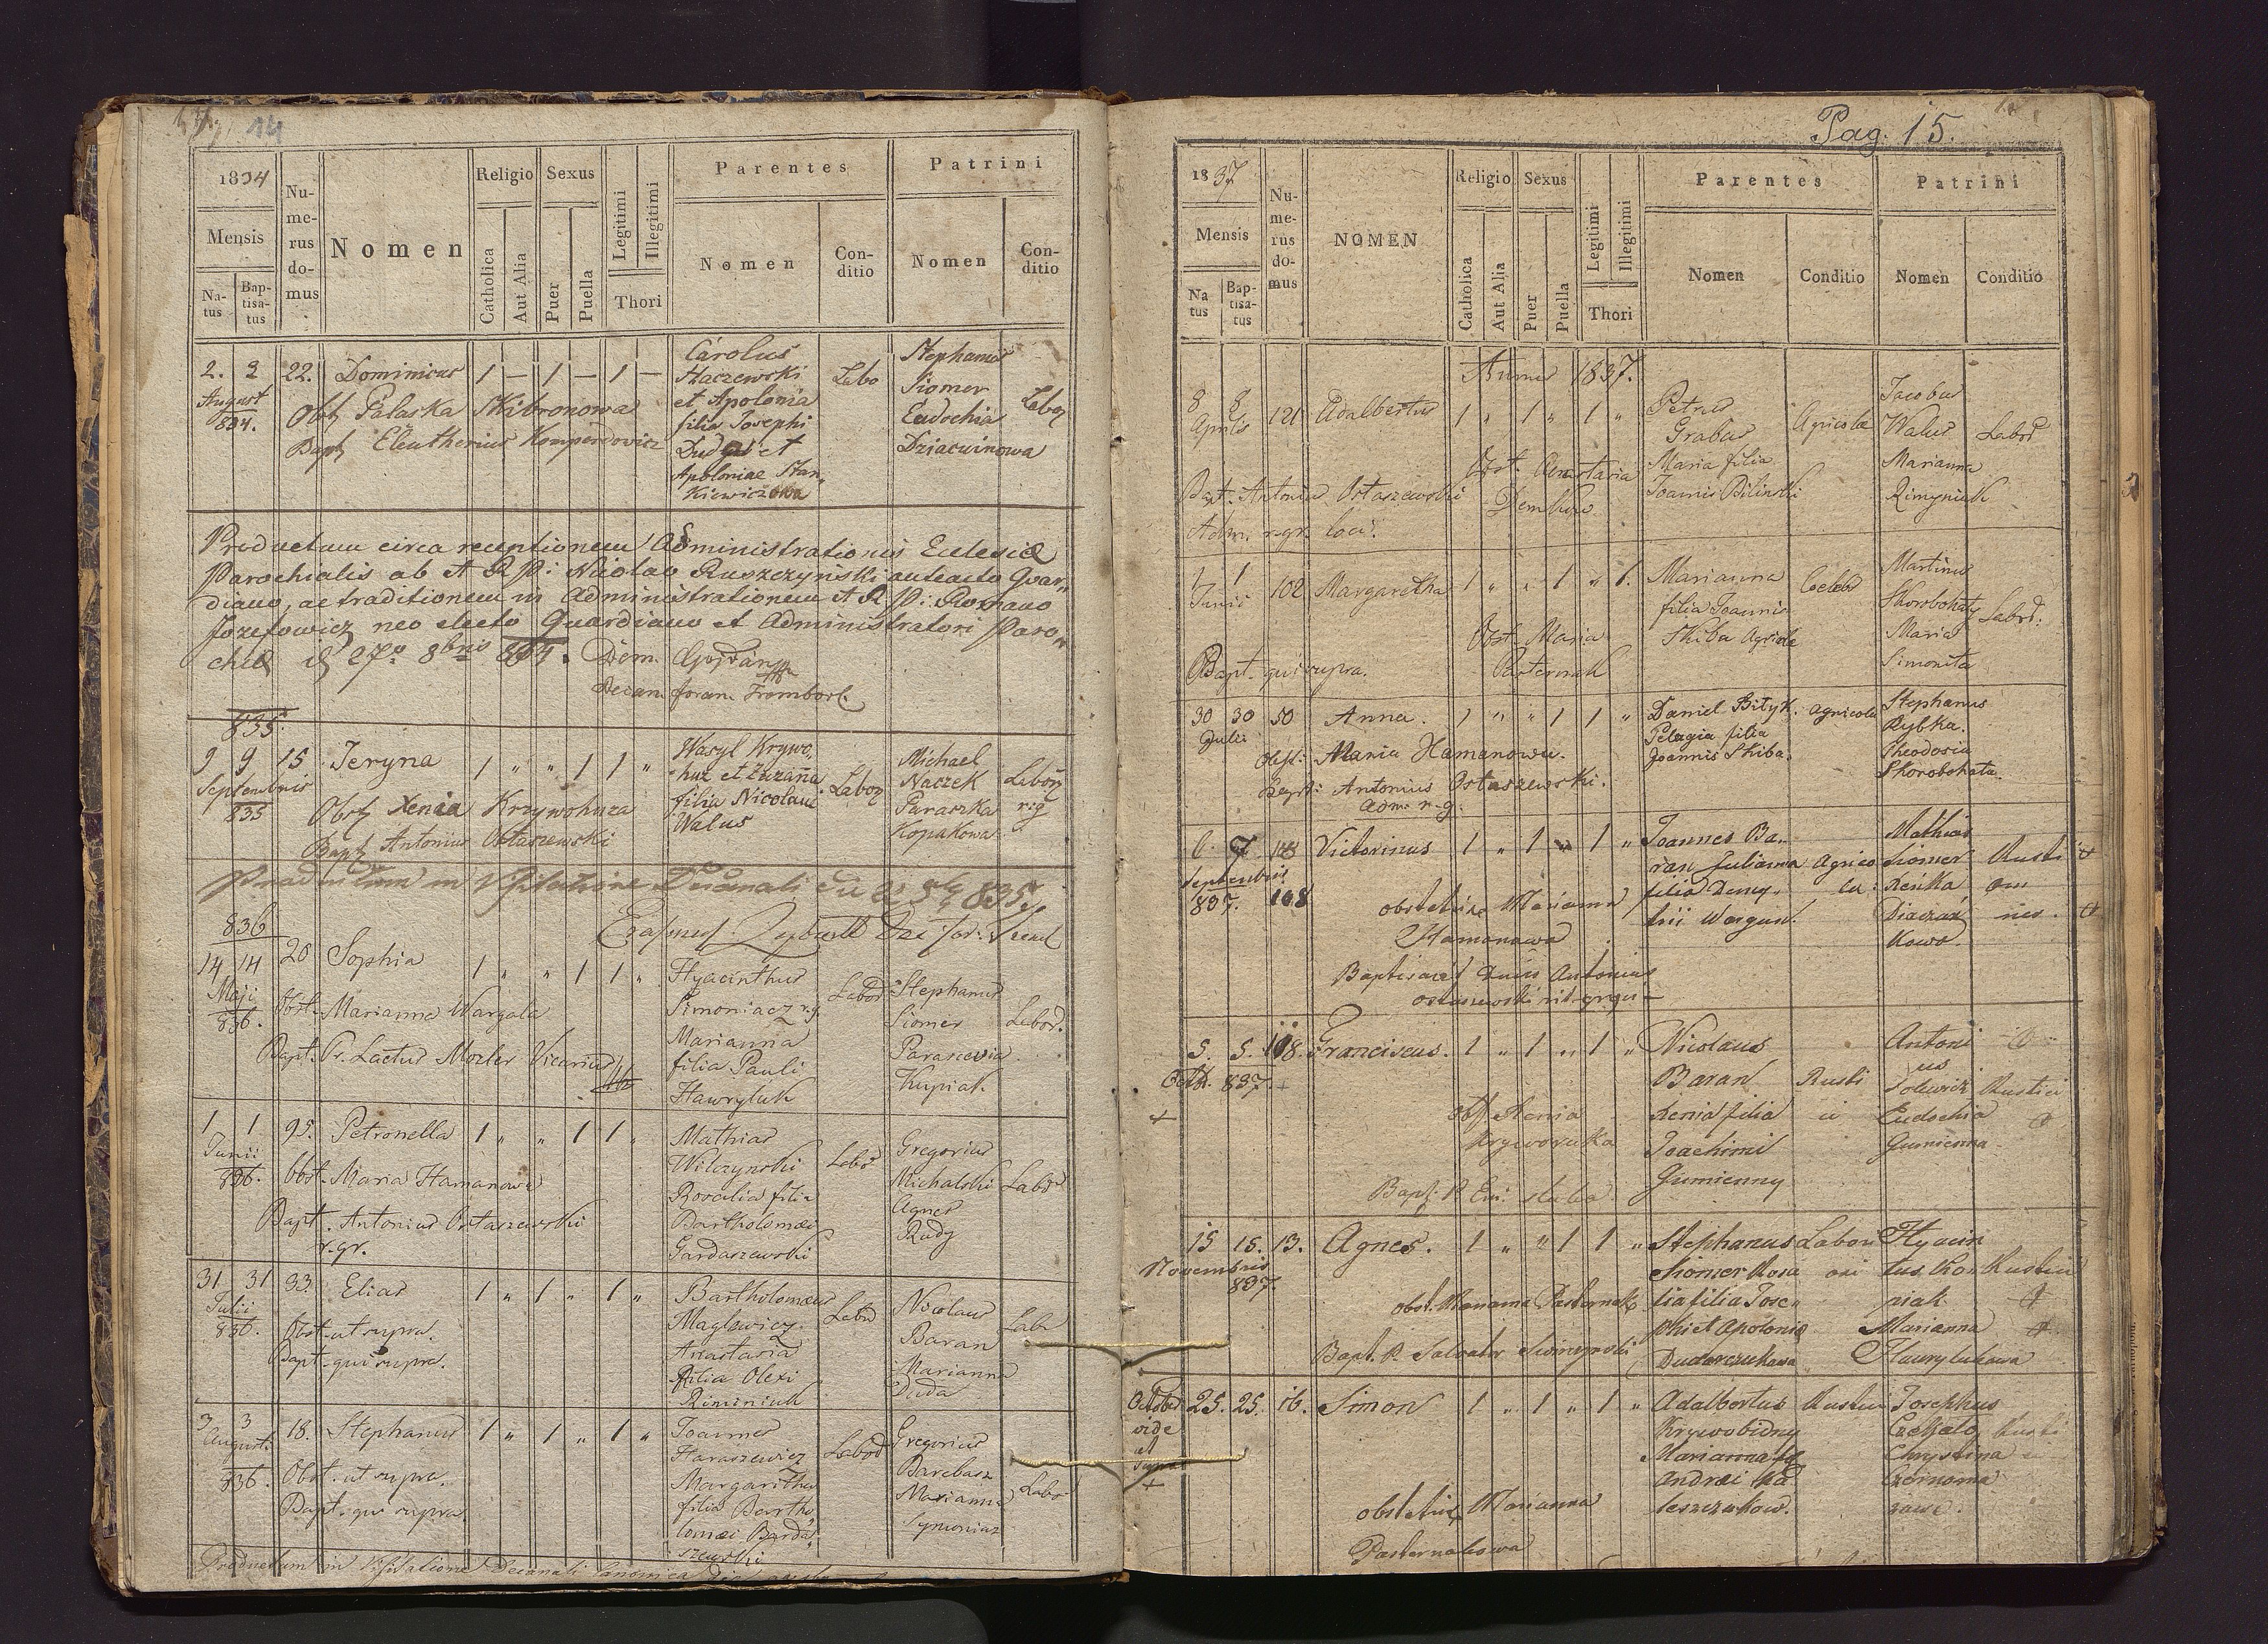 14
1834
Mensis
Na-
tus
Bap-
tisa-
tus
Nu-
me-
rus
do-
mus
Nomen
Religio
Catholica
Aut Alia
Sexus
Puer
Puella
Legitimi
Illegitimi
Thori
Parentes
Nomen
Con-
ditio
Patrini
Nomen
Con-
ditio
2. 2 22. Dominicus 1 — 1 — 1 —
August
834.
Obst Palaska Skibronowa
Bapt Eleutherius Komperdowicz
Carolus
Staczewski
et Apolonia
filia Josephi
Duda et
Apoloniae Stan
kiewiczowa
Labo
Stephanus
Siomer
Eudochia
Dziacuinowa
Labor
Productum circa receptionem Administrationis Eclesiæ
Parochialis ab A R P: Nicolao Ruszczyński anteacto Gvar„
diano, ac traditionem in Administrationem A R P: Romano
Jozefowicz neo electo Guardiano et Administratori Paro„
chiæ d 27º 8bris 834. Dem.
Decan. foran. Trembovl.
835.
9 9 15 Jeryna 1 „ „ 1 1 „
Septembris
835
Obst Xenia Krzywohuza
Bapt Antonius Ostaszewski
Wasyl Krywo„
huz et Zuzanna
filia Nicolaui
Walus
Labor
Michael
Naczek
Paraszka
Kopakowa
Labor
r: g
Productum in Visitatione Decanali
836
14 14 20 Sophia 1 „ „ 1 1 „
Maji
836.
Obst. Marianna Wargala
Bapt. Fr. Laetus Mozler Vicarius
Hyacinthus
Simoniacz r.g.
Marianna
filia Pauli
Hawryluk
Labor
Stephanus
Siomer
Parascevia
Kupiak
Labor.
1 1 95. Petronella 1 „ „ 1 1 „
Junii
836.
Obst. Maria Hamanowa
Bapt. Antonius Ostaszewski
r. gr.
Mathias
Wilczynski
Rosalia filia
Bartholomæi
Gardaszewski
Labor
Gregorius
Michalski
Agnes
Rudy
Labor
31 31 33. Elias 1 „ 1 „ 1 „
Julii
836.
Obst. ut supra.
Bapt. qui supra.
Bartholomæus
Maglewicz.
Anastasia
filia Olexi
Riminiuk
Labor
Nicolaus
Baran
Marianna
Duda
Lab
3 3 18. Stephanus 1 „ 1 „ 1 „
August.
836.
Obst. ut supra
Bapt. qui supra.
Joannes
Haraszewicz
Margaritha
filia Bartho„
lomæi Barda„
szewski
Labor
Gregorius
Barabasz
Marianna
Symoniaz
Labor
Productum in Visitatione Decanali Canonica
Pag. 15.
1837
Mensis
Na
tus
Bap-
tisa-
tus
Nu-
me-
rus
do-
mus
NOMEN
Religio
Catholica
Aut Alia
Sexus
Puer
Puella
Legitimi
Illegitimi
Thori
Parentes
Nomen
Conditio
Patrini
Nomen
Conditio
Annus 1837.
8 8 121 Adalbertus 1 „ 1 „ 1 „
Aprilis
Obst. Anastasia
Dembkow
Bapt. Antonius Ostaszewski
Adm. r. gr. loci.
Petrus
Grabas
Maria filia
Joannis Bilinski
Agricolæ
Jacobus
Walus
Marianna
Rimyniuk
Labor
1 1 102 Margaretha 1 „ „ 1 „ 1.
Junii
Obst. Maria
Pasternak
Bapt. qui supra.
Marianna
filia Joannis
Skiba Agricolæ
Celebs
Martinus
Skorobohaty
Maria
Simonita
Labor:
30 30 50 Anna. 1 „ „ 1 1 „
Julii
Obst: Maria Hamanowa.
Bapt: Antonius Ostaszewski.
Adm: r. g.
Daniel Bityk.
Pelagia filia
Joannis Skiba.
agricola
Stephanus
Rybka.
Theodosia
Skorobohata.
6. 7 Victorinus 1 „ 1 „ 1 „
Septembris
837. 108
obstetrix Marianna
Hamanowa
Baptisavit Antonius
Ostaszewski
Joannes Ba„
ran Julianna
filia Demy„
trii Wargun.
Agrico
læ:
Mathias
Siomer
Xenka
Diaczuk
kowa.
Rusti
5. 5. 108. Franciscus. 1 „ 1 „ 1 „
Octb. 837.
obst Xenia
Kryworuka
Nicolaus
Baran
Xenia filia
Joachimi
Gumienny
Rusti
ci
Antoni
us
Eudochia
Gumienna
Rustici
15 15. 13. Agnes. 1 „ „ 1 1 „
Novembris
837.
obst. Marianna Pasternak
Bapt. P. Salvator
Stephanus
Siomer Rosa
lia filia Jose„
phi et Apoloniæ
Dudarczukowa
Labori
osi
Hyacin
tus Ko
piak
Marianna
Hawrylukowa
Rustici
Octobris
vide
ut
supra
25. 25. 16. Simon 1 „ 1 „ 1 „
obstetrix Marianna
Pasternakowa
Adalbertus
Krywobidny
Marianna
Andræi
leszczukow.
Rustici
Josephus
Chrystina
Rusti